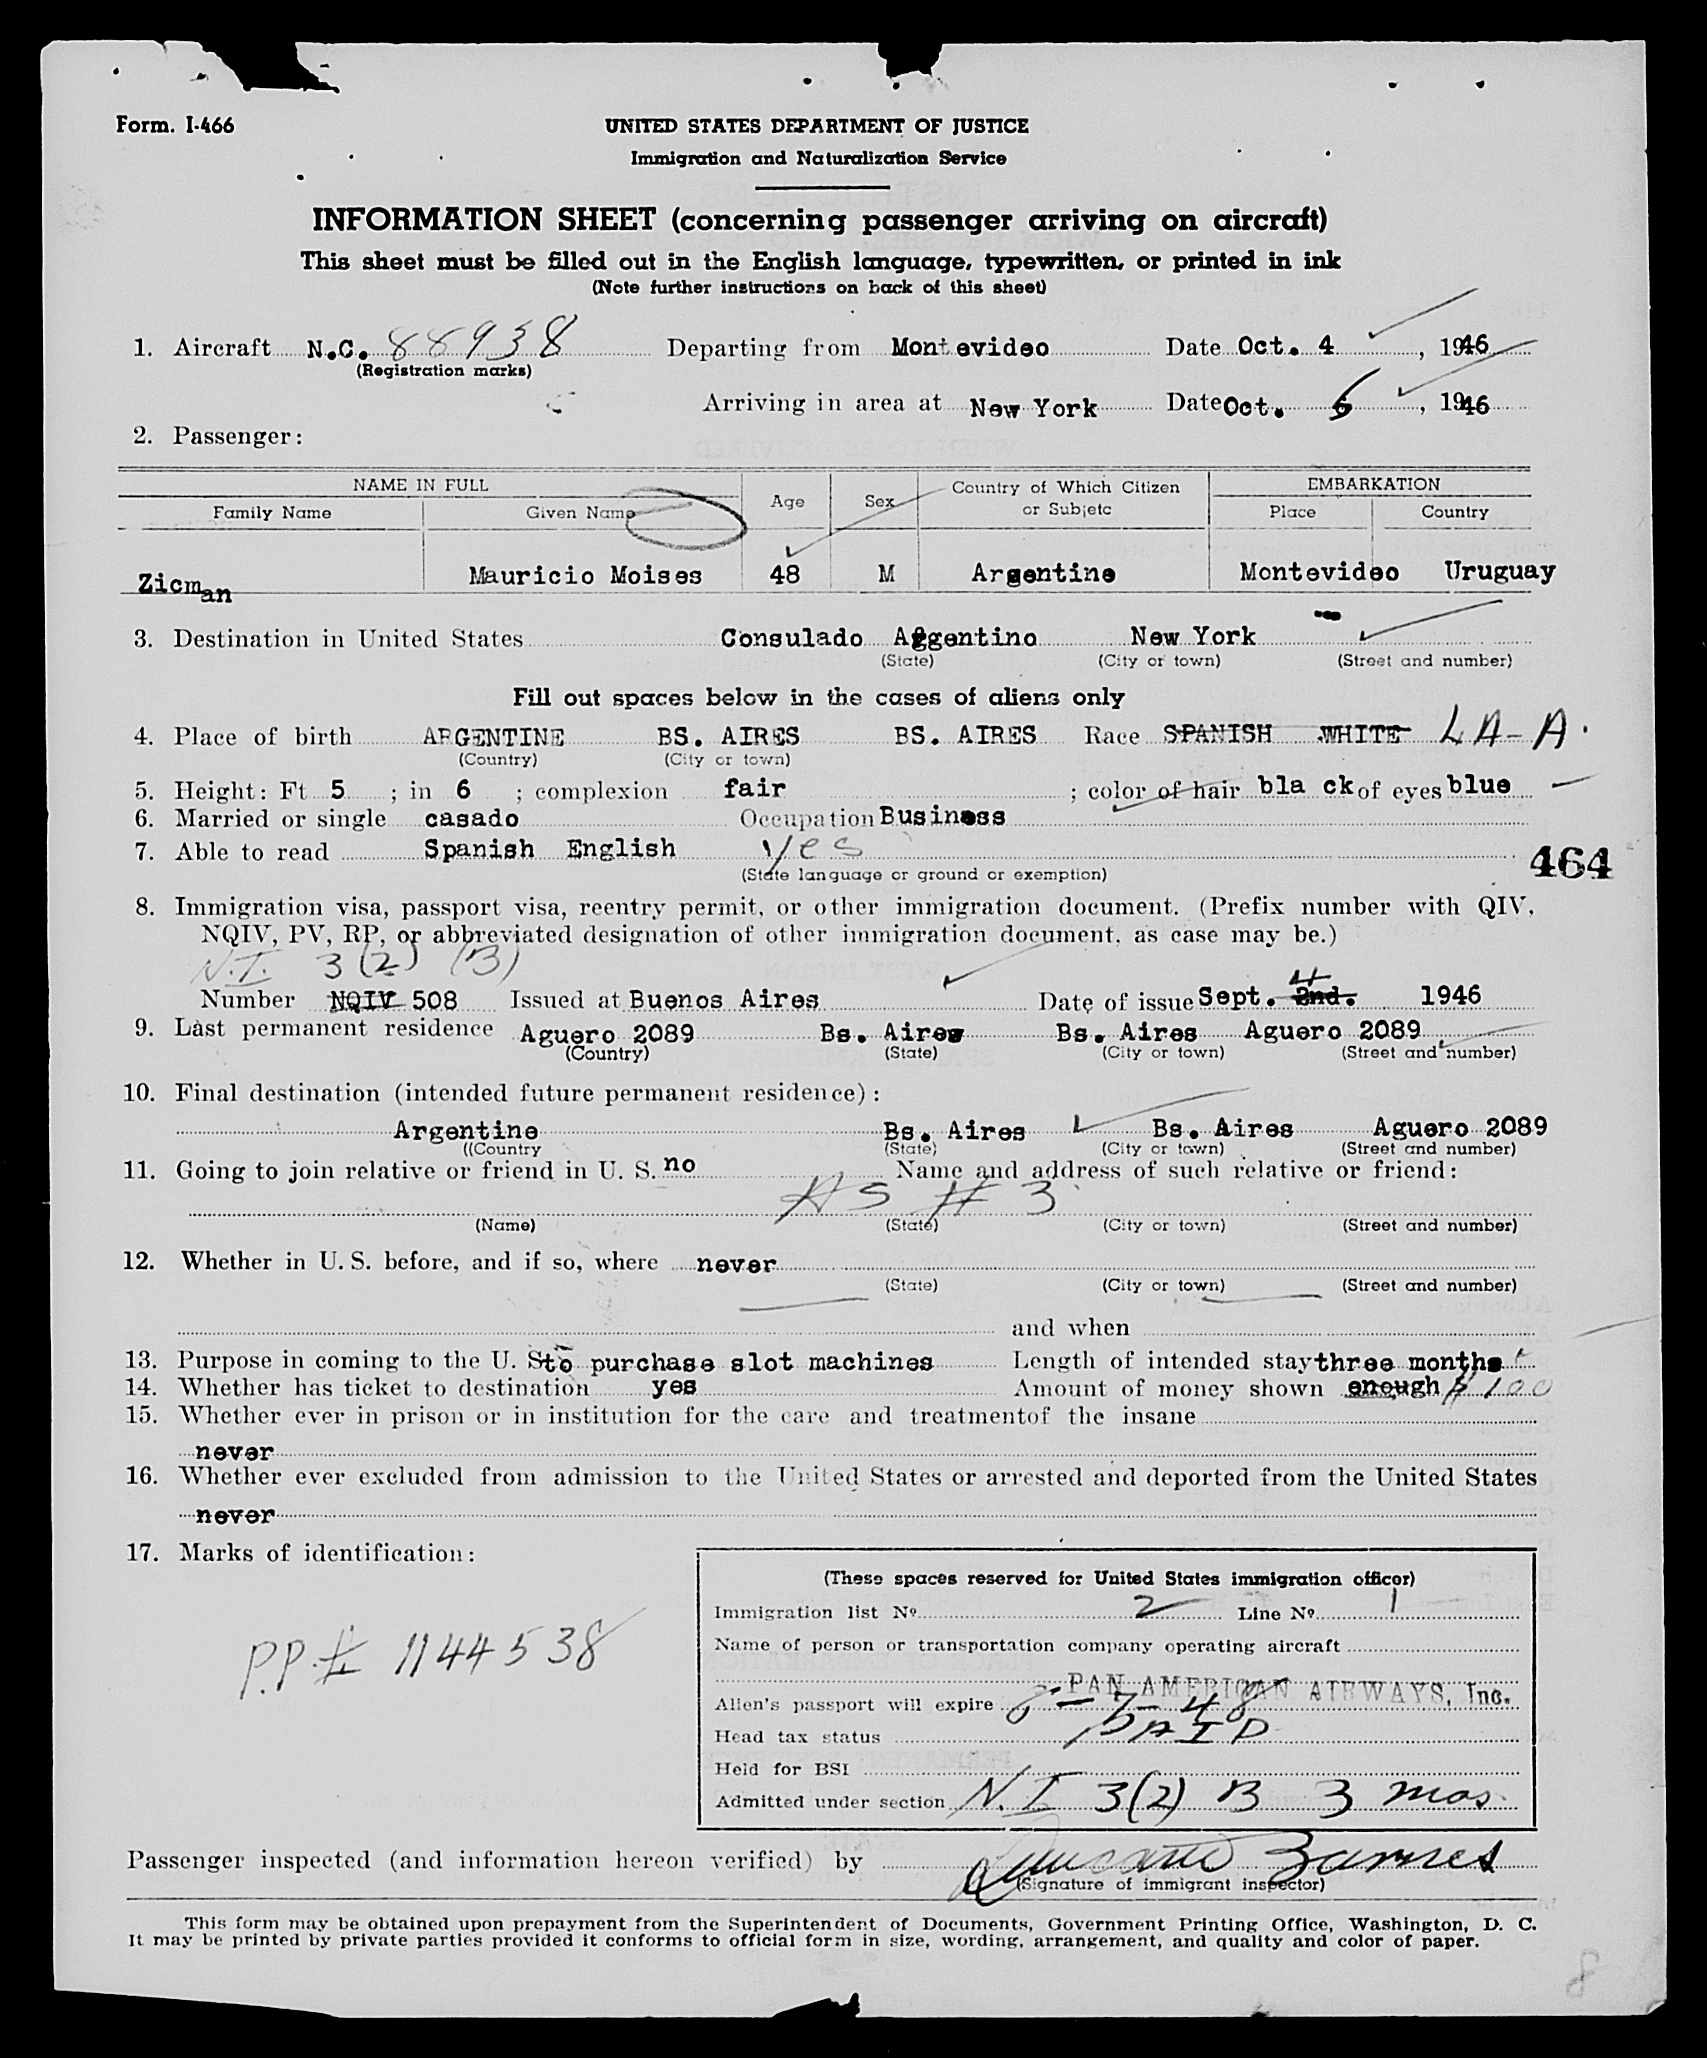 Form. I-466
UNITED STATES DEPARTMENT OF JUSTICE
Immigration and Naturalization Service
INFORMATION SHEET (concerning passenger arriving on aircraft)
This sheet must be filled out in the English language, typewritten, or printed in ink
(Note further instructions on back of this sheet)
1. Aircraft N.C. 88938 Departing from Montevideo Date Oct. 4, 1946
(Registration marks)
Arriving in area at New York Date Oct. 6, 1946
2. Passenger:
NAME IN FULL Age Sex Country of Which Citizen or Subjetc EMBARKATION
Family Name Given Name Place Country
Zicman Mauricio Moises 48 M Argentine Montevideo Uruguay
3. Destination in United States Consulado Aggentino New York
(State) (City or town) (Street and number)
Fill out spaces below in the cases of aliens only
4. Place of birth ARGENTINE BS. AIRES BS. AIRES Race SPANISH WHITE LA-A.
(Country) (City or town)
5. Height: Ft 5 ; in 6 ; complexion fair ; color of hair bla ck of eyes blue
6. Married or single casado Occupation Business
7. Able to read Spanish English yes
(State language or ground or exemption)
464
8. Immigration visa, passport visa, reentry permit, or other immigration document. (Prefix number with QIV,
NQIV, PV, RP, or abbreviated designation of other immigration document, as case may be.)
N.I. 3(2) (B)
Number NQIV 508 Issued at Buenos Aires Date of issue Sept. 2nd. 4 1946
9. Làst permanent residence Aguero 2089 Bs. Aires Bs. Aires Aguero 2089
(Country) (State) (City or town) (Street and number)
10. Final destination (intended future permanent residence):
Argentine Bs. Aires Bs. Aires Aguero 2089
((Country (State) (City or town) (Street and number)
11. Going to join relative or friend in U. S. no Name and address of such relative or friend:
AS # 3
(Name) (State) (City or town) (Street and number)
12. Whether in U. S. before, and if so, where never
(State) (City or town) (Street and number)
and when
13. Purpose in coming to the U. S. to purchase slot machines Length of intended stay three months
14. Whether has ticket to destination yes Amount of money shown enough $100
15. Whether ever in prison or in institution for the care and treatmentof the insane
never
16. Whether ever excluded from admission to the United States or arrested and deported from the United States
never
17. Marks of identification:
P.P.# 1144538
(These spaces reserved for United States immigration officer)
Immigration list Nº 2 Line Nº 1
Name of person or transportation company operating aircraft
PAN AMERICAN AIRWAYS, Inc.
Alien's passport will expire 8-7-48
Head tax status PAID
Held for BSI
Admitted under section N.I 3(2) B 3 mos.
Passenger inspected (and information hereon verified) by
(Signature of immigrant inspector)
This form may be obtained upon prepayment from the Superintendent of Documents, Government Printing Office, Washington, D. C.
It may be printed by private parties provided it conforms to official form in size, wording, arrangement, and quality and color of paper.
8